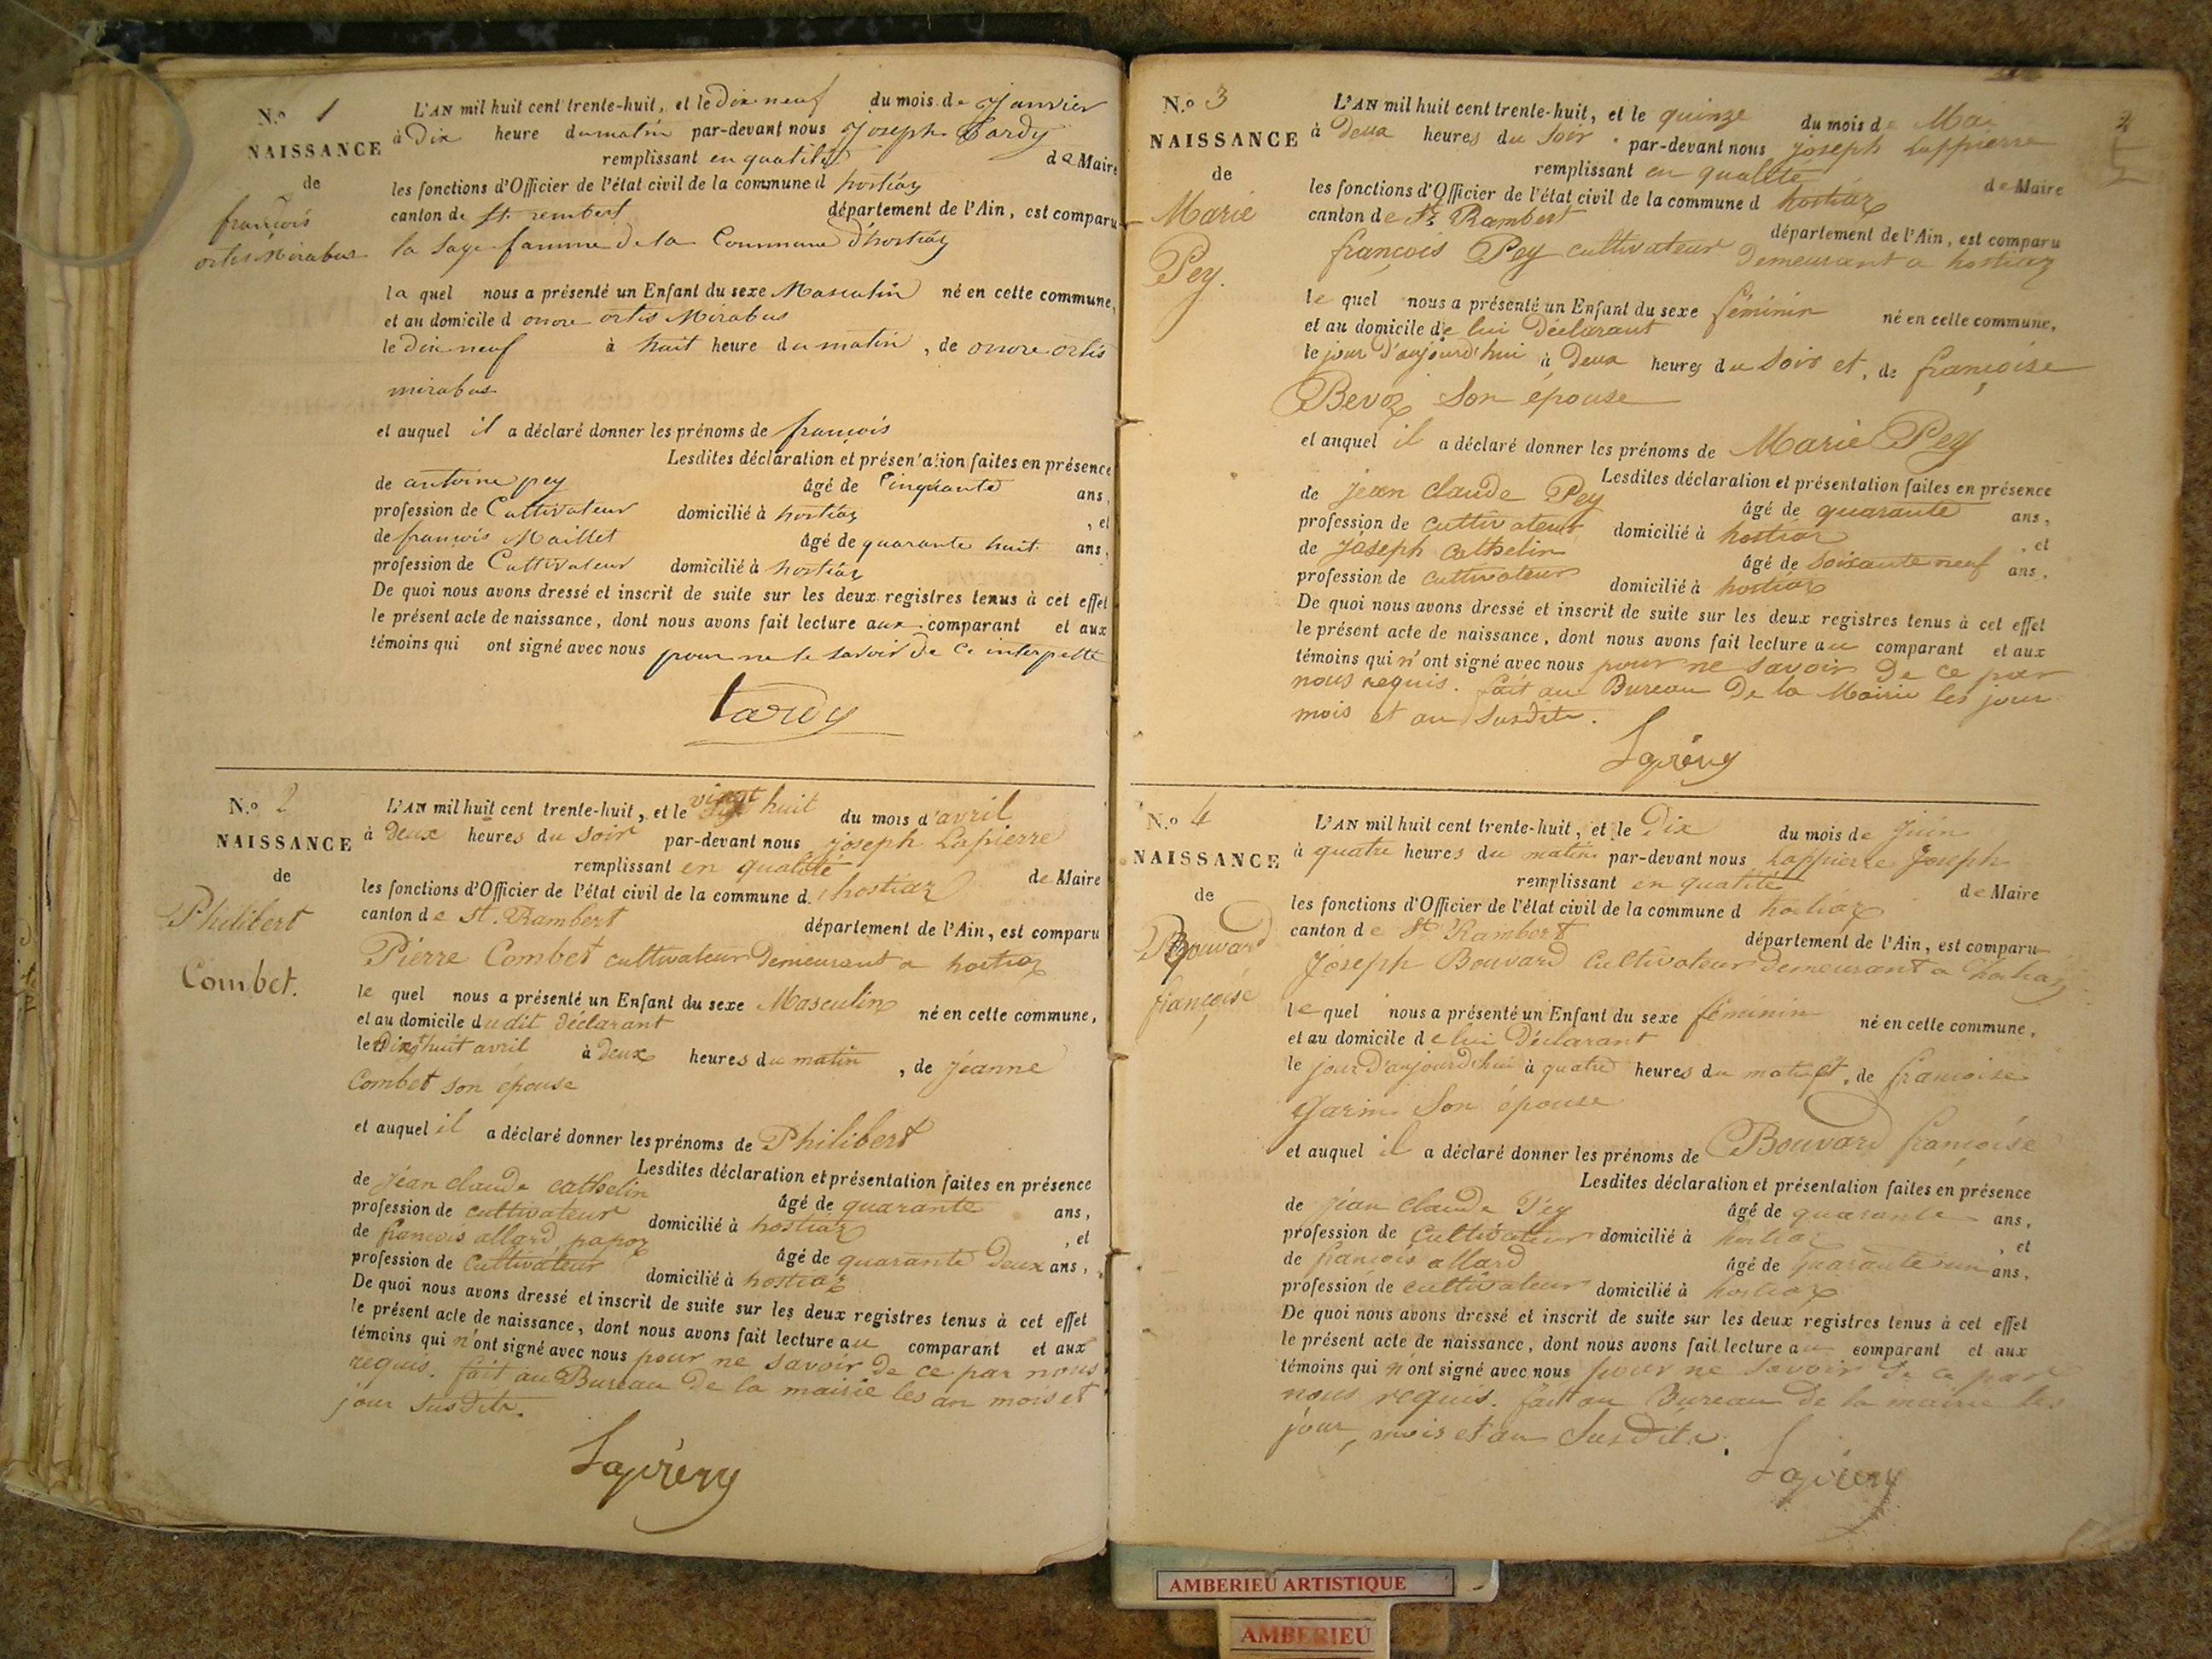 N.o 1
NAISSANCE
de
françois
ortis Mirabus
L'AN mil huit cent trente-huit, et le Dix neuf du mois de Janvier
à Dix heure du matin par-devant nous Joseph Tardy
remplissant en qualité de Maire
les fonctions d'Officier de l'état civil de la commune d hostiaz
canton de St. rembert département de l'Ain, est comparu
la Sage famme de la Commune d'hostiaz
la quel nous a présenté un Enfant du sexe Masculin né en cette commune,
et au domicile d onore ortis Mirabus
le Dix neuf à huit heure du matin, de onore ortis
mirabus
et auquel il a déclaré donner les prénoms de françois
Lesdites déclaration et présentation faites en présence
de antoine pey âgé de Cinquante ans,
profession de Cultivateur domicilié à hostiaz, et
de françois Maillet âgé de quarante huit ans,
profession de Cultivateur domicilié à hostiaz
De quoi nous avons dressé et inscrit de suite sur les deux registres tenus à cet effet
le présent acte de naissance, dont nous avons fait lecture aux comparant et aux
témoins qui ont signé avec nous pour ne le savoir de ce interpellé
tardy
N.o 2
NAISSANCE
de
Philibert
Combet.
L'AN mil huit cent trente-huit, et le vingt huit du mois d'avril
à deux heures du soir par-devant nous joseph Lapierre
remplissant en qualité de Maire
les fonctions d'Officier de l'état civil de la commune d. hostiaz
canton de St. Rambert département de l'Ain, est comparu
Pierre Combet cultivateur Demeurant a hostiaz
le quel nous a présenté un Enfant du sexe Masculin né en cette commune,
et au domicile dudit déclarant
le huit avril à deux heures du matin, de jéanne
Combet son épouse
et auquel il a déclaré donner les prénoms de Philibert
Lesdites déclaration et présentation faites en présence
de jéan claude cathelin âgé de quarante ans,
profession de cultivateur domicilié à hostiaz, et
de francois allard papoz âgé de quarante Deux ans,
profession de cultivateur domicilié à hostiaz
De quoi nous avons dressé et inscrit de suite sur les deux registres tenus à cet effet
le présent acte de naissance, dont nous avons fait lecture au comparant et aux
témoins qui n'ont signé avec nous pour ne savoir de ce par nous
requis. fait au Bureau De la mairie les an mois et
jour susdits.
N.o 3
NAISSANCE
de
Marie
Pey.
L'AN mil huit cent trente-huit, et le quinze du mois de Mai
à Deux heures du soir par-devant nous joseph Lappierre
remplissant en qualité de Maire
les fonctions d'Officier de l'état civil de la commune d hostiaz
canton de St. Rambert département de l'Ain, est comparu
françois Pey cultivateur Demeurant a hostiaz
le quel nous a présenté un Enfant du sexe féminin né en cette commune,
et au domicile de lui Déclarant
le jour D'aujourd'hui à Deux heures du Soir et, de françoise
Bevoz Son épouse
et auquel il a déclaré donner les prénoms de Marie Pey
Lesdites déclaration et présentation faites en présence
de jean claude Pey âgé de quarante ans,
profession de cultivateur domicilié à hostiaz, et
de joseph cathelin âgé de Soisante neuf ans,
profession de cultivateur domicilié à hostiaz
De quoi nous avons dressé et inscrit de suite sur les deux registres tenus à cet effet
le présent acte de naissance, dont nous avons fait lecture au comparant et aux
témoins qui n'ont signé avec nous pour ne savoir De ce par
nous requis. fait au Bureau De la Mairie les jour
mois et an Susdits.
N.o 4
NAISSANCE
de
Bouvard
françoise
L'AN mil huit cent trente-huit, et le Dix du mois de juin
à quatre heures du matin par-devant nous Lappierre Joseph
remplissant en qualité de Maire
les fonctions d'Officier de l'état civil de la commune d hostiaz
canton de St. Rambert département de l'Ain, est comparu
Joseph Bouvard Cultivateur Demeurant a hostiaz
le quel nous a présenté un Enfant du sexe féminin né en cette commune,
et au domicile de lui Déclarant
le jour D'aujourd'hui à quatre heures du matin et, de françoise
Garin Son épouse
et auquel il a déclaré donner les prénoms de Bouvard françoise
Lesdites déclaration et présentation faites en présence
de jean Claude Péy âgé de quarante ans,
profession de Cultivateur domicilié à hostiaz, et
de françois allard âgé de quarante un ans,
profession de cultivateur domicilié à hostiaz
De quoi nous avons dressé et inscrit de suite sur les deux registres tenus à cet effet
le présent acte de naissance, dont nous avons fait lecture au comparant et aux
témoins qui n'ont signé avec nous pour ne savoir de ce par
nous requis. fait au Bureau de la mairie les
jour, mois et an Susdits.
AMBERIEU ARTISTIQUE
AMBERIEU